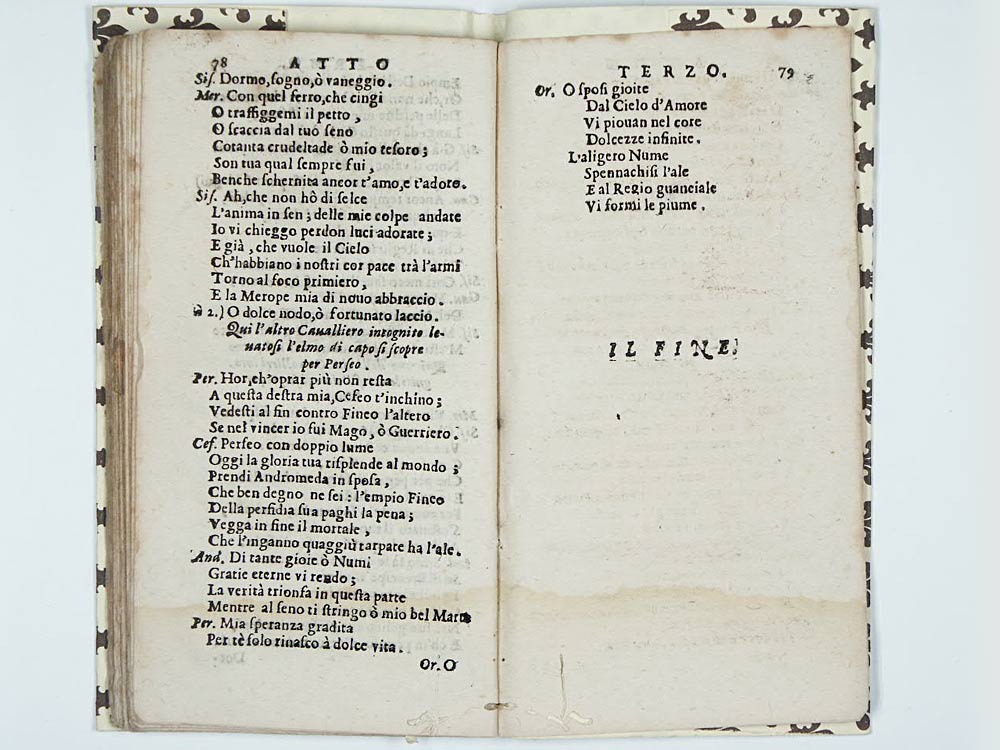 78 ATTO
Sis. Dormo, sogno, ò vaneggio.
Mer. Con quel ferro, che cingi
O traffiggemi il petto,
O scaccia dal tuo seno
Cotanta crudeltade ò mio tesoro;
Son tua qual sempre fui,
Benche schernita ancor t'amo, e t'adoro.
Sis. Ah, che non hò di selce
L'anima in sen; delle mie colpe andate
Io vi chieggo perdon luci adorate;
E già, che vuole il Cielo
Ch'habbiano i nostri cor pace trà l'armi
Torno al foco primiero,
E la Merope mia di nouo abbraccio.
à 2.) O dolce nodo, ò fortunato laccio.
Qui l'altro Caualliero incognito le-
uatosi l'elmo di capo si scopre
per Perseo.
Per. Hor, ch'oprar più non resta
A questa destra mia, Cefeo t'inchino;
Vedesti al fin contro Fineo l'altero
Se nel vincer io fui Mago, ò Guerriero.
Cef. Perseo con doppio lume
Oggi la gloria tua risplende al mondo;
Prendi Andromeda in sposa,
Che ben degno ne sei: l'empio Fineo
Della perfidia sua paghi la pena;
Vegga in fine il mortale,
Che l'inganno quaggiù tarpate ha l'ale.
And. Di tante gioie ò Numi
Gratie eterne vi rendo;
La verità trionfa in questa parte
Mentre al seno ti stringo ò mio bel Marte
Per. Mia speranza gradita
Per tè solo rinasco à dolce vita.
Or. O
TERZO. 79
Or. O sposi gioite
Dal Cielo d'Amore
Vi piouan nel core
Dolcezze infinite.
L'aligero Nume
Spennachisi l'ale
E al Regio guanciale
Vi formi le piume.
IL FINE.